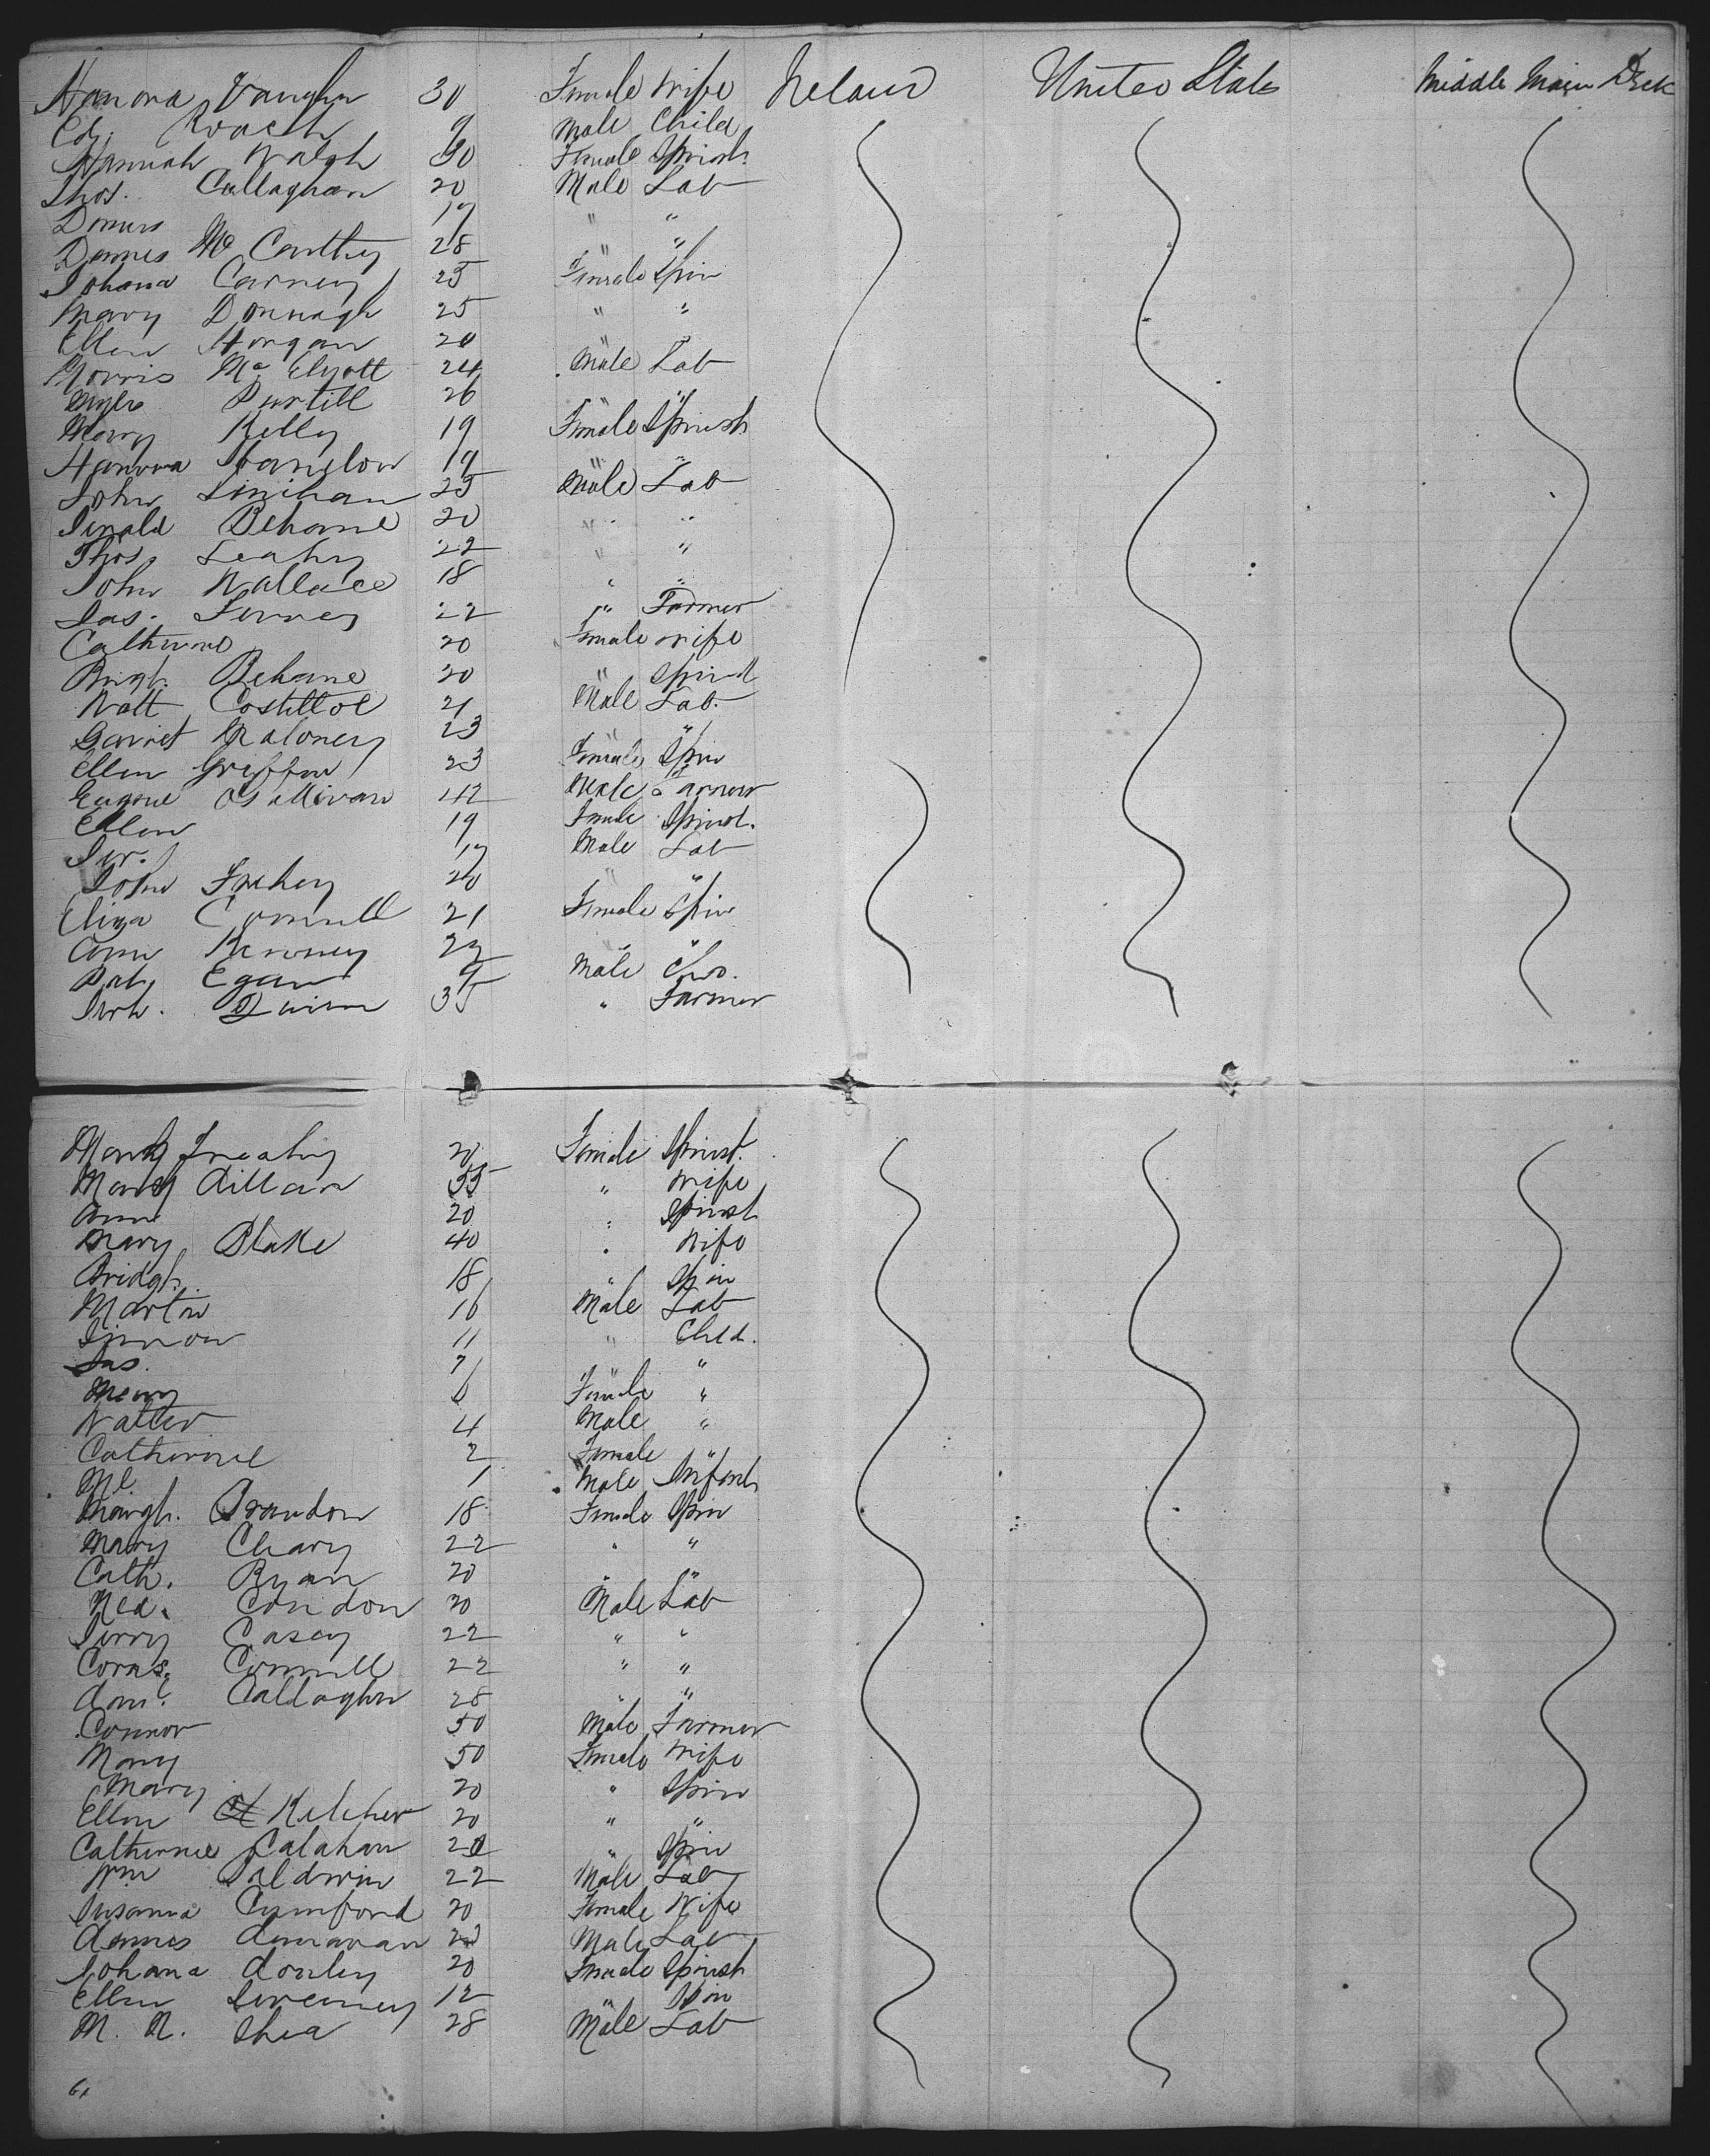 Hanora Vaughn 30 Female Wife Ireland United States Middle Main Deck
Ed. Roach 9 Male Child
Hannah Walsh 30 Female Spinst.
Thos. Callaghan 20 Male Lab
Dennis 19 " "
Dennis Mc Carthy 28 " "
Johana Carney 25 Female Spin
Mary Donnagh 25 " "
Ellen Horgan 20 " "
Morris Mc Elyott 24 Male Lab
Myles Purtill 26 " "
Mary Kelly 19 Female Spinst
Hanora 19 " "
John Linihan 25 Male Lab
Behane 20 " "
Thos. Leahy 22 " "
John Wallace 18 " "
Jas. 22 " Farmer
Catherine 20 Female Wife
Brigt. Behane 20 " Spinst
Watt Costilloe 21 Male Lab.
Garret Maloney 23 " "
Ellen Griffin 23 Female Spin
Eugene OSullivan 42 Male Farmer
Ellen 19 Female Spinst.
Jer. 17 Male Lab
John 20 " "
Eliza Connell 21 Female Spin
Ann 22 " "
Pat. Egan 9 Male
35 " Farmer
20 Female Spinst.
Mary Dillan 55 " Wife
Ann 20 " Spinst
Mary Blake 40 " Wife
Bridgt. 18 " Spin
Martin 16 Male Lab
Simon 11 " Chld.
Jas. 7 " "
Mary 6 Female "
Walter 4 Male "
Catherine 2 Female "
Ml. 1 Male Infant
Margt. Brandon 18 Female Spin
Mary Cleary 22 " "
Cath. Ryan 20 " "
Ned. Condon 20 Male Lab
Jerry Casey 22 " "
Corns. Connell 22 " "
Danl. Callaghan 28 " "
Connor 50 Male Farmer
Mary 50 Female Wife
Mary 20 " Spin
Ellen Kelcher 20 " "
Catherine Calahan 20 " Spin
Wm Baldwin 22 Male Lab
Susanna Cumford 20 Female Wife
Dennis Donnavan 23 Male Lab
Johana Donley 20 Female Spinst
Ellen Sweeney 12 " Spin
M. N. Shea 28 Male Lab
61